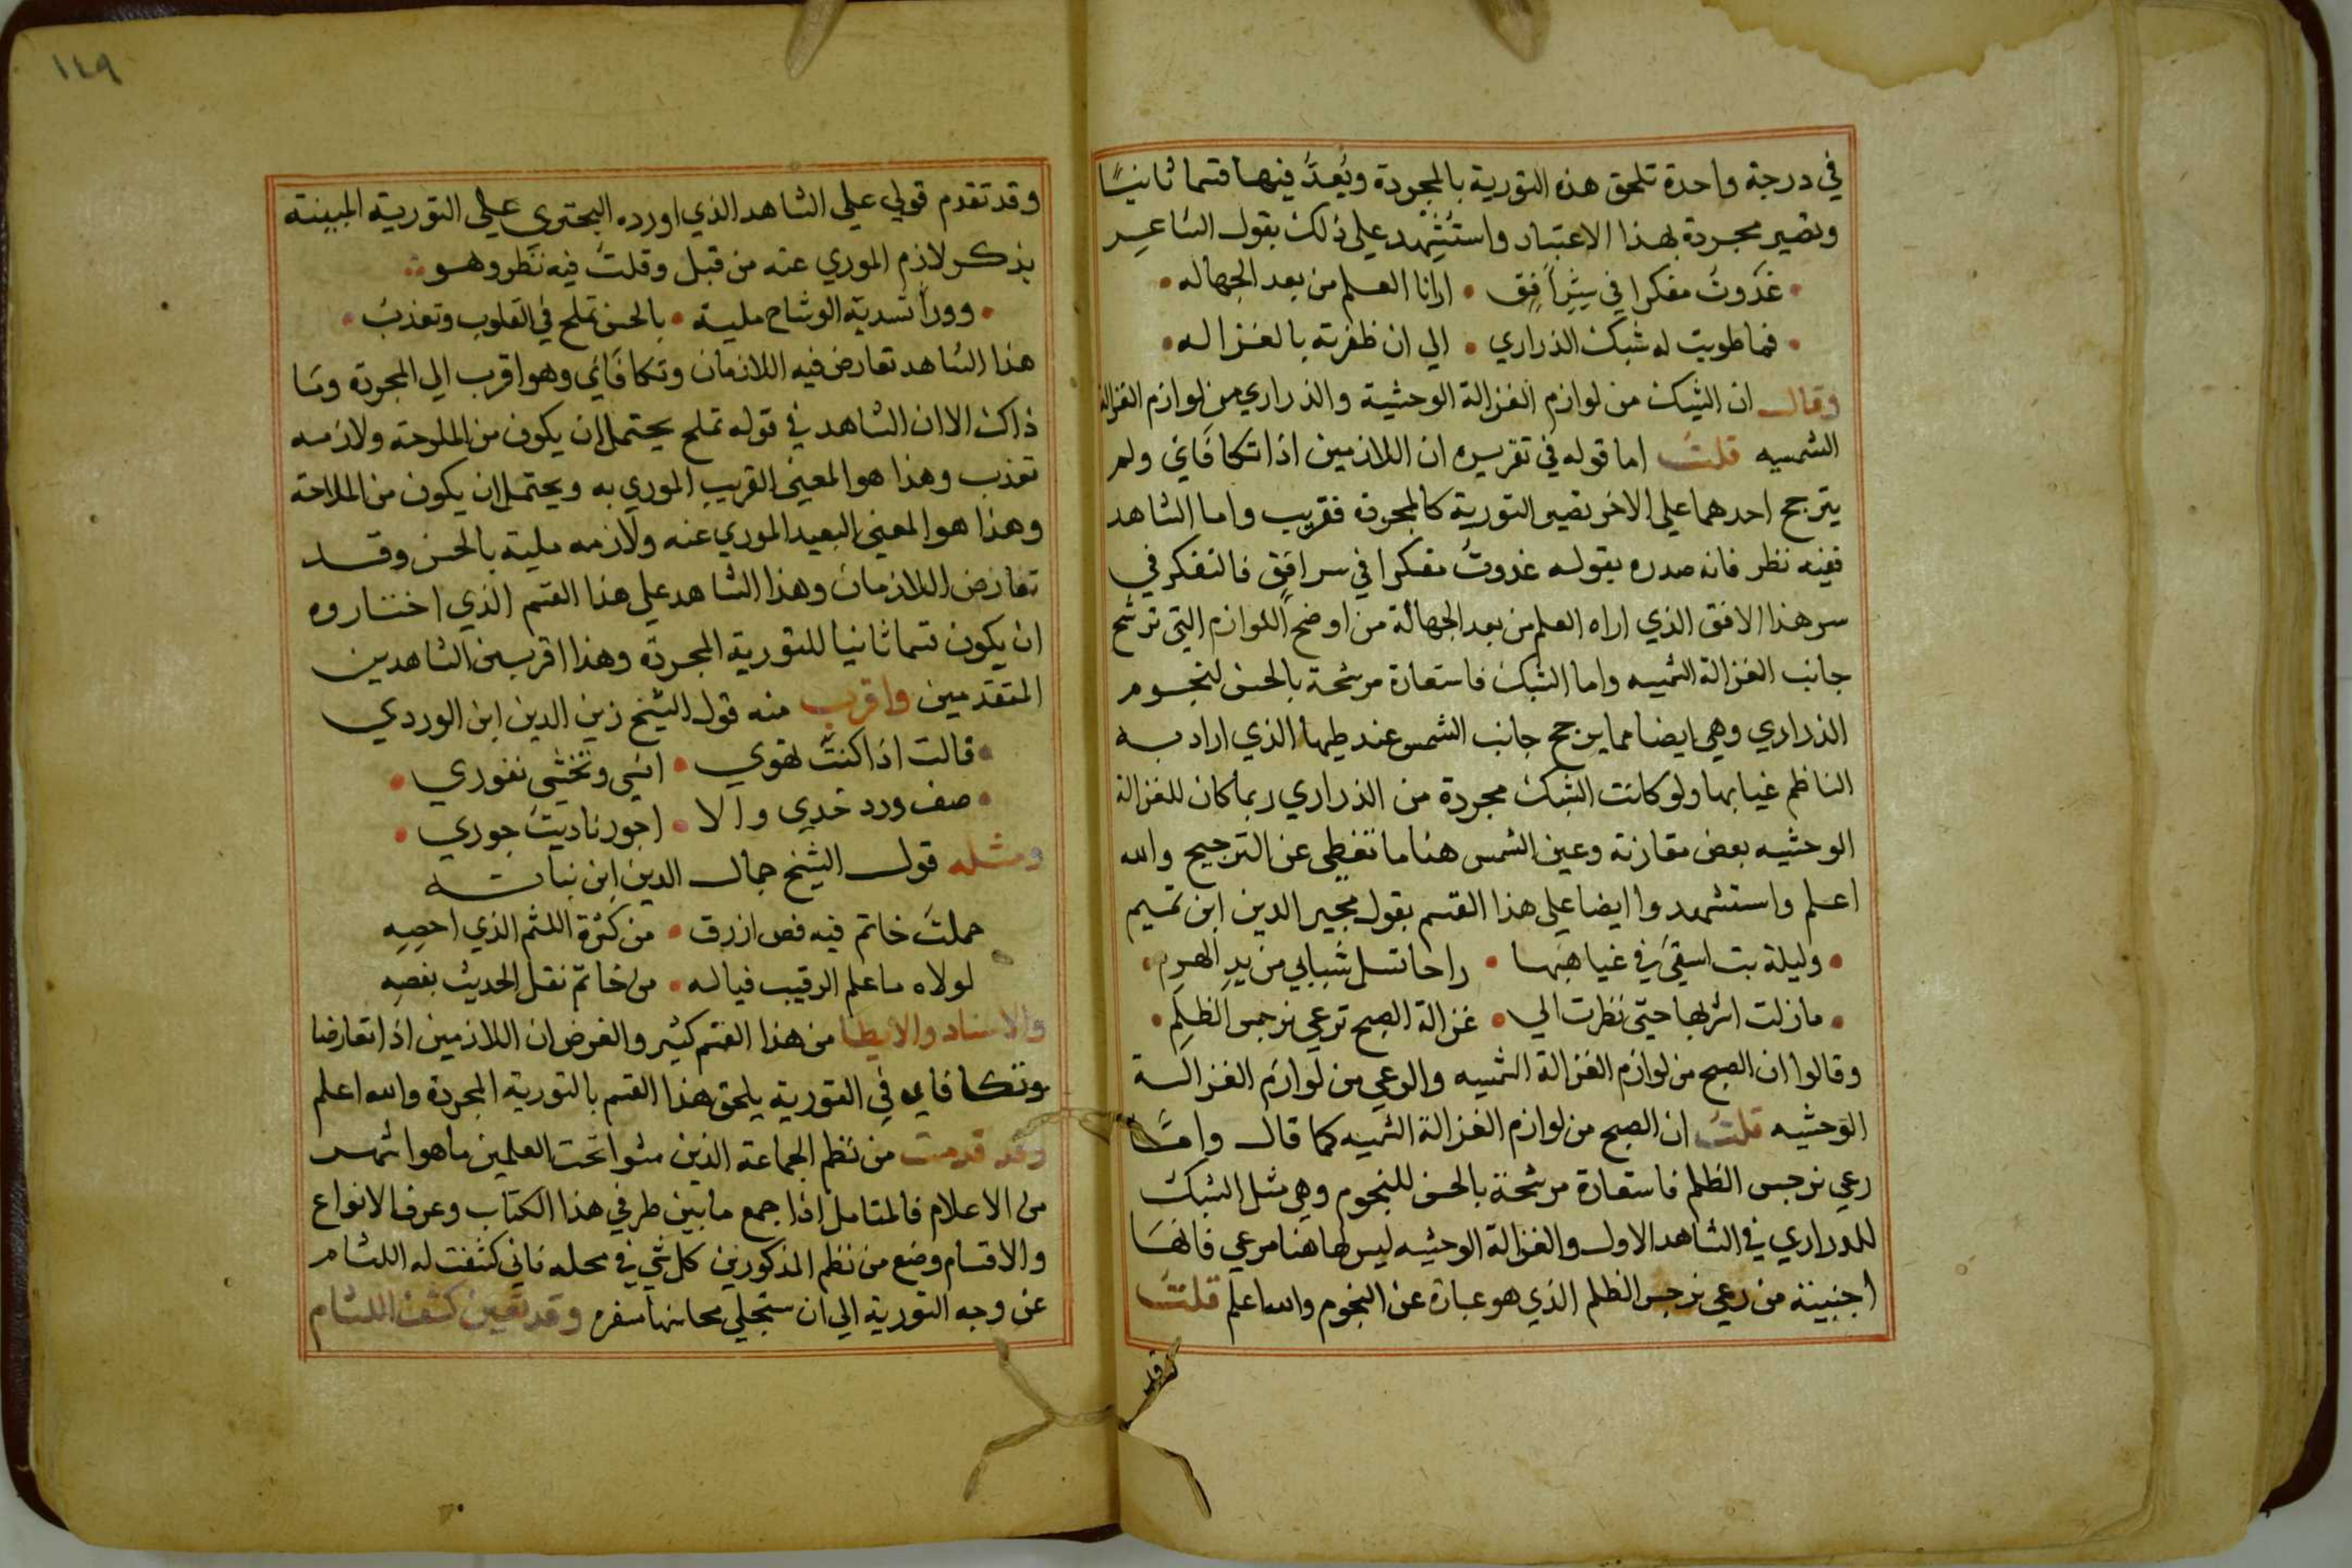 في درجة واحدة تلحق هذه التورية بالمجردة ويُعدُّ فيها قسما ثانيًا
وتصير مجردة بهذا الاعتبار واستُشهد على ذلك بقول الشاعر
غدَوتُ مفكرا في سِرِّ اُفقٍ • ارانا العلم من بعد الجهاله
فما طويت له شبك الدراري • الي ان ظفرته بالغزاله
وقال ان الشبك من لوازم الغزالة الوحشية والدراري من لوازم الغزالة
الشمسيه قلت اما قوله في تقريره ان اللازمين اذا تكافَاي ولم
يترجح احدهما علي الاخر تصير التورية كالمجردة فقريب واما الشاهد
ففيه نظر فانه صدره بقوله غدوتُ مفكرا في سر افقٍ فالتفكر في
سر هذا الافق الذي اراه العلم من بعد الجهالة من اوضح اللوازم التي ترشح
جانب الغزالة الشمسيه واما الشبك فاستعارة مرشحة بالحسن لنجوم
الدراري وهي ايضا مما يرجح جانب الشمس عند طيها الذي اراد به
الناظم غيابها ولو كانت الشبك مجردة من الدراري ربما كان للغزالة
الوحشيه بعض مقارنة وعين الشمس هنا ما تغطي عن الترجيح والله
اعلم واستشهدوا ايضا علي هذا القسم بقول مجير الدين ابن تميم
• وليلة بت اسقي في غياهبها • راحا تسل شبابي من يدِ الهرم
• مازلت اشربها حتى نظرت الي • غزالة الصبح ترعي نرجس الظلمِ
وقالوا ان الصبح من لوازم الغزالة الشمسيه والرعي من لوازم الغزالة
الوحشيه قلت ان الصبح من لوازم الغزالة الشمسيه كما قال وامَّا
رعي نرجس الظلم فاستعارة مرشحة بالحسن للنجوم وهي مثل الشبك
للدراري في الشاهد الاول والغزالة الوحشيه ليس لها هنا مرعي فانها
اجنبية من رعي نرجس الظلم الذي هو عبارة عن النجوم والله اعلم قلت
وقد
١٤٩
وقد تقدم قولي علي الشاهد الذي اورده البحتري علي التورية المبينة
بذكر لازم المورى عنه من قبل وقلتُ فيه نظر وهو
• ووراَ تسدية الوشاح ملية • بالحسن تملح في القلوب وتعذبُ
هذا الشاهد تعارض فيه اللازمان وتكافَاي وهو اقرب الي المجردة وما
ذاك الا ان الشاهد في قوله تملح يحتمل ان يكون من الملوحة ولازمه
تعذب وهذا هو المعني القريب الموري به ويحتمل ان يكون من الملاحة
وهذا هو المعني البعيد الموري عنه ولازمه ملية بالحسن وقد
تعارض اللازمان وهذا الشاهد علي هذا القسم الذي اختاروه
ان يكون قسما ثانيا للتورية المجردة وهذا اقرب من الشاهدين
المتقدمين واقرب منه قول الشيخ زين الدين ابن الوردي
• قالت اذا كنتَ تهوي • انسي وتخشى نفوري
• صف ورد خدي والا • اجور ناديتُ جوري
ومثله قول الشيخ جمال الدين ابن نباته
حملتَ خاتم فيه فص ازرق • من كثرة اللثم الذي احصِهِ
لولاه ما علم الرقيب فياله • من خاتم نقل الحديث بفصِهِ
والاسناد والايطا من هذا القسم كثير والغرض ان اللازمين اذا تعارضا
وتكافاي في التورية يلحق هذا القسم بالتورية المجردة والله اعلم
وقد قدمت من نظم الجماعة الذين مشوا تحت العلمين ما هو اشهر
من الاعلام فالمتامل اذا جمع ما بين طرفي هذا الكتاب وعرف الانواع
والاقسام وضع من نظم المذكورين كل شي في محله فاني كشفت له اللثام
عن وجه التورية الي ان ستجلي محاسنها سفره وقد تعين كشف اللثام